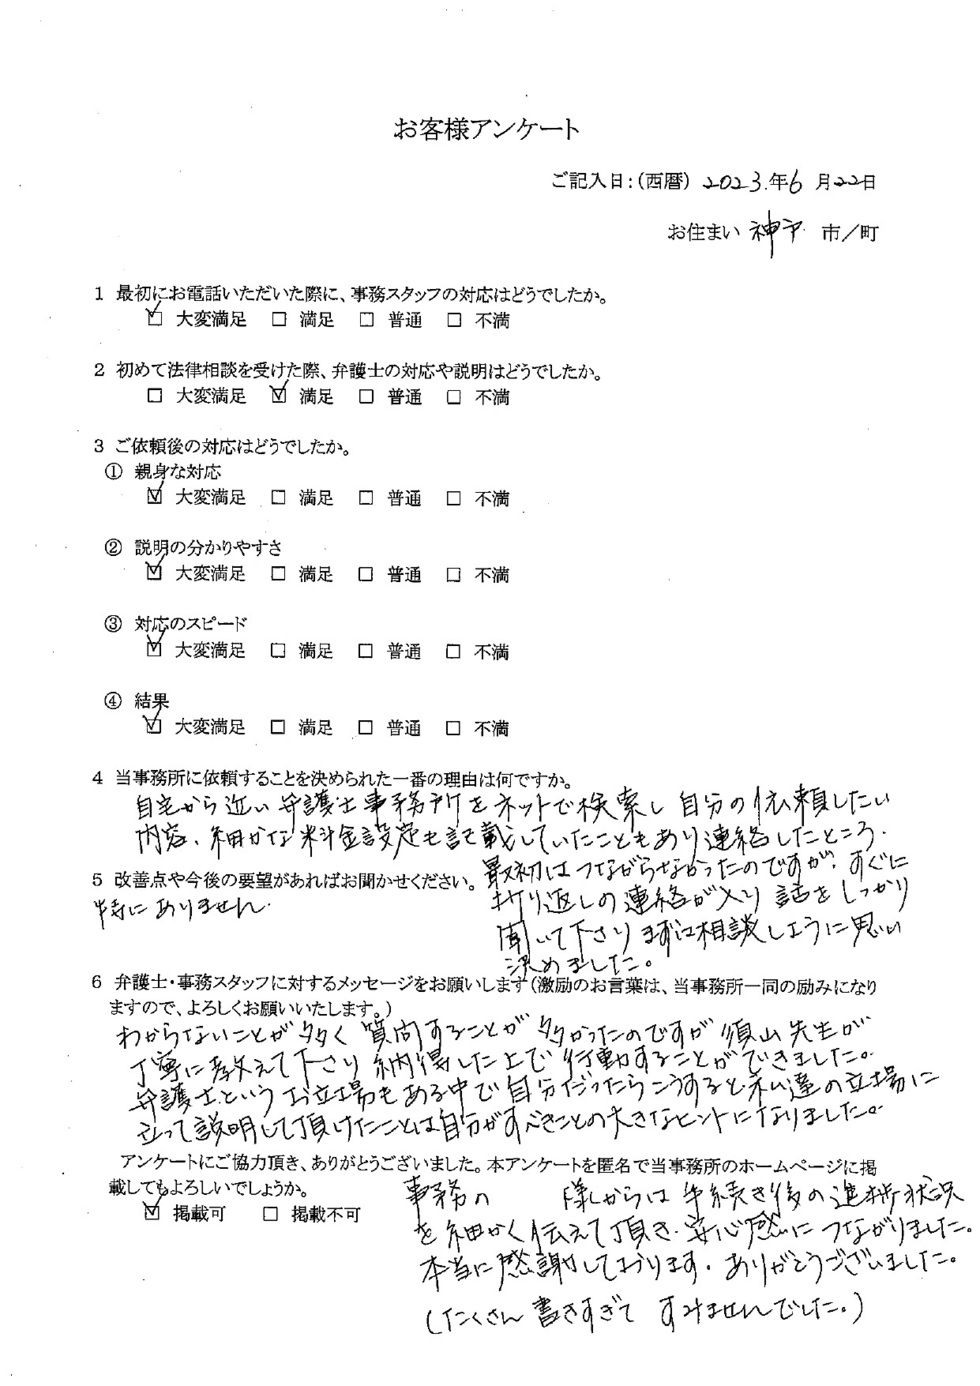 お客様アンケート
ご記入日：(西暦) 2023.年6月22日
お住まい 神戸 市／町
1 最初にお電話いただいた際に、事務スタッフの対応はどうでしたか。
☑ 大変満足 □ 満足 □ 普通 □ 不満
2 初めて法律相談を受けた際、弁護士の対応や説明はどうでしたか。
□ 大変満足 ☑ 満足 □ 普通 □ 不満
3 ご依頼後の対応はどうでしたか。
① 親身な対応
☑ 大変満足 □ 満足 □ 普通 □ 不満
② 説明の分かりやすさ
☑ 大変満足 □ 満足 □ 普通 □ 不満
③ 対応のスピード
☑ 大変満足 □ 満足 □ 普通 □ 不満
④ 結果
☑ 大変満足 □ 満足 □ 普通 □ 不満
4 当事務所に依頼することを決められた一番の理由は何ですか。
自宅から近い弁護士事務所をネットで検索し自分の依頼したい
内容、細かな料金設定も記載していたこともあり連絡したところ、
最初はつながらなかったのですが、すぐに
折り返しの連絡が入り話をしっかり
聞いて下さりまずは相談しように思い
決めました。
5 改善点や今後の要望があればお聞かせください。
特にありません
6 弁護士・事務スタッフに対するメッセージをお願いします(激励のお言葉は、当事務所一同の励みになり
ますので、よろしくお願いいたします。)
わからないことが多く質問することが多かったのですが須山先生が
丁寧に教えて下さり納得した上で行動することができました。
弁護士というお立場もある中で自分だったらこうすると私達の立場に
立って説明して頂けたことは自分がすべきことの大きなヒントになりました。
事務の 様しからは手続き後の進捗状況
を細かく伝えて頂き、安心感につながりました。
本当に感謝しております。ありがとうございました。
(たくさん書きすぎてすみませんでした。)
アンケートにご協力頂き、ありがとうございました。本アンケートを匿名で当事務所のホームページに掲
載してもよろしいでしょうか。
☑ 掲載可 □ 掲載不可